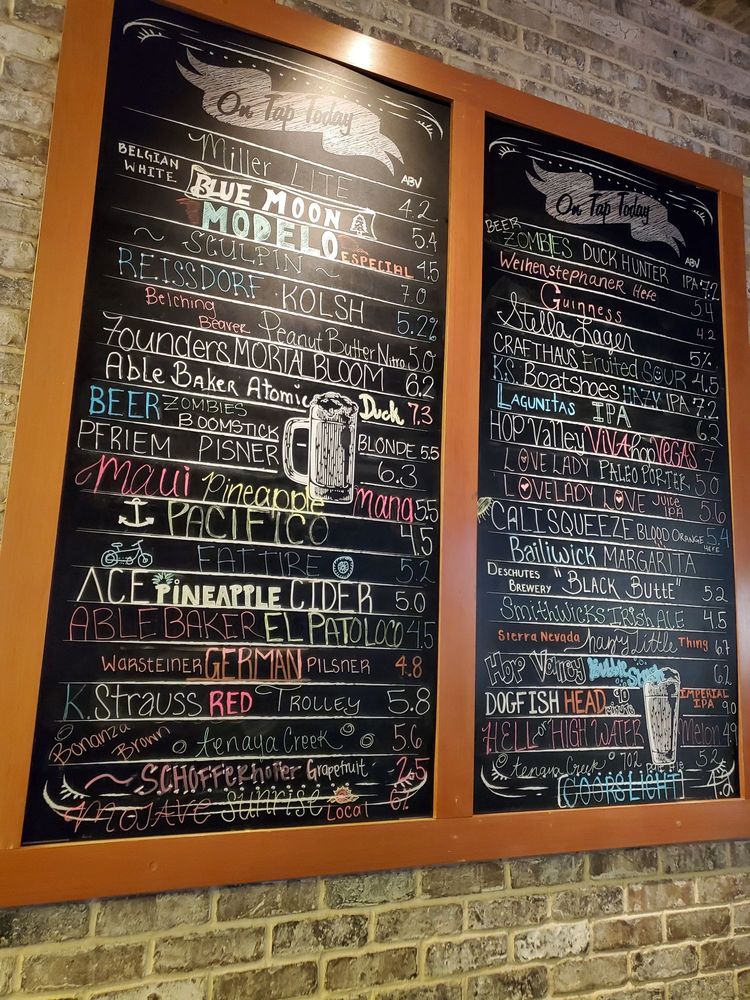 On Tap Today
ABV
Miller LITE 4.2
BELGIAN WHITE BLUE MOON 5.4
MODELO ESPECIAL 4.5
~ SCULPIN ~ 7.0
REISSDORF KOLSH 5.2%
Belching Beaver Peanut Butter Nitro 5.0
Founders MORTAL BLOOM 6.2
Able Baker Atomic Duck 7.3
BEER ZOMBIES BOOMSTICK BLONDE 5.5
PFRIEM PISNER 6.3
Maui Pineapple Mana 5.5
PACIFICO 4.5
FAT TIRE 5.2
ACE PINEAPPLE CIDER 5.0
ABLE BAKER EL PATO LOCO 4.5
WARSTEINER GERMAN PILSNER 4.8
K. Strauss RED TROLLEY 5.8
Bonanza Brown Tenaya Creek 5.6
~ SCHOFFERHOFER Grapefruit 2.5
MOJAVE SUNRISE Local 6%
On Tap Today
ABV
BEER ZOMBIES DUCK HUNTER IPA 7.2
Weihenstephaner Hefe 5.4
Guinness 4.2
Stella Lager 5%
CRAFTHAUS Fruited SOUR 4.5
K.S. Boatshoes HAZY IPA 7.2
LAGUNITAS IPA 6.2
HOP Valley VIVA hop VEGAS 7
LOVE LADY PALEO PORTER 5.0
LOVELADY LOVE JUICE IPA 5.6
CALI SQUEEZE BLOOD ORANGE HEFE 5.4
Bailiwick MARGARITA
DESCHUTES BREWERY "BLACK BUTTE" 5.2
Smithwicks IRISH ALE 4.5
Sierra Nevada Hazy Little Thing 6.7
HOP VALLEY 6.2
DOGFISH HEAD 90 IMPERIAL IPA 9.0
HELL or HIGH WATER Melon 4.9
Tenaya Creek 702 5.2
COORS LIGHT 4.2